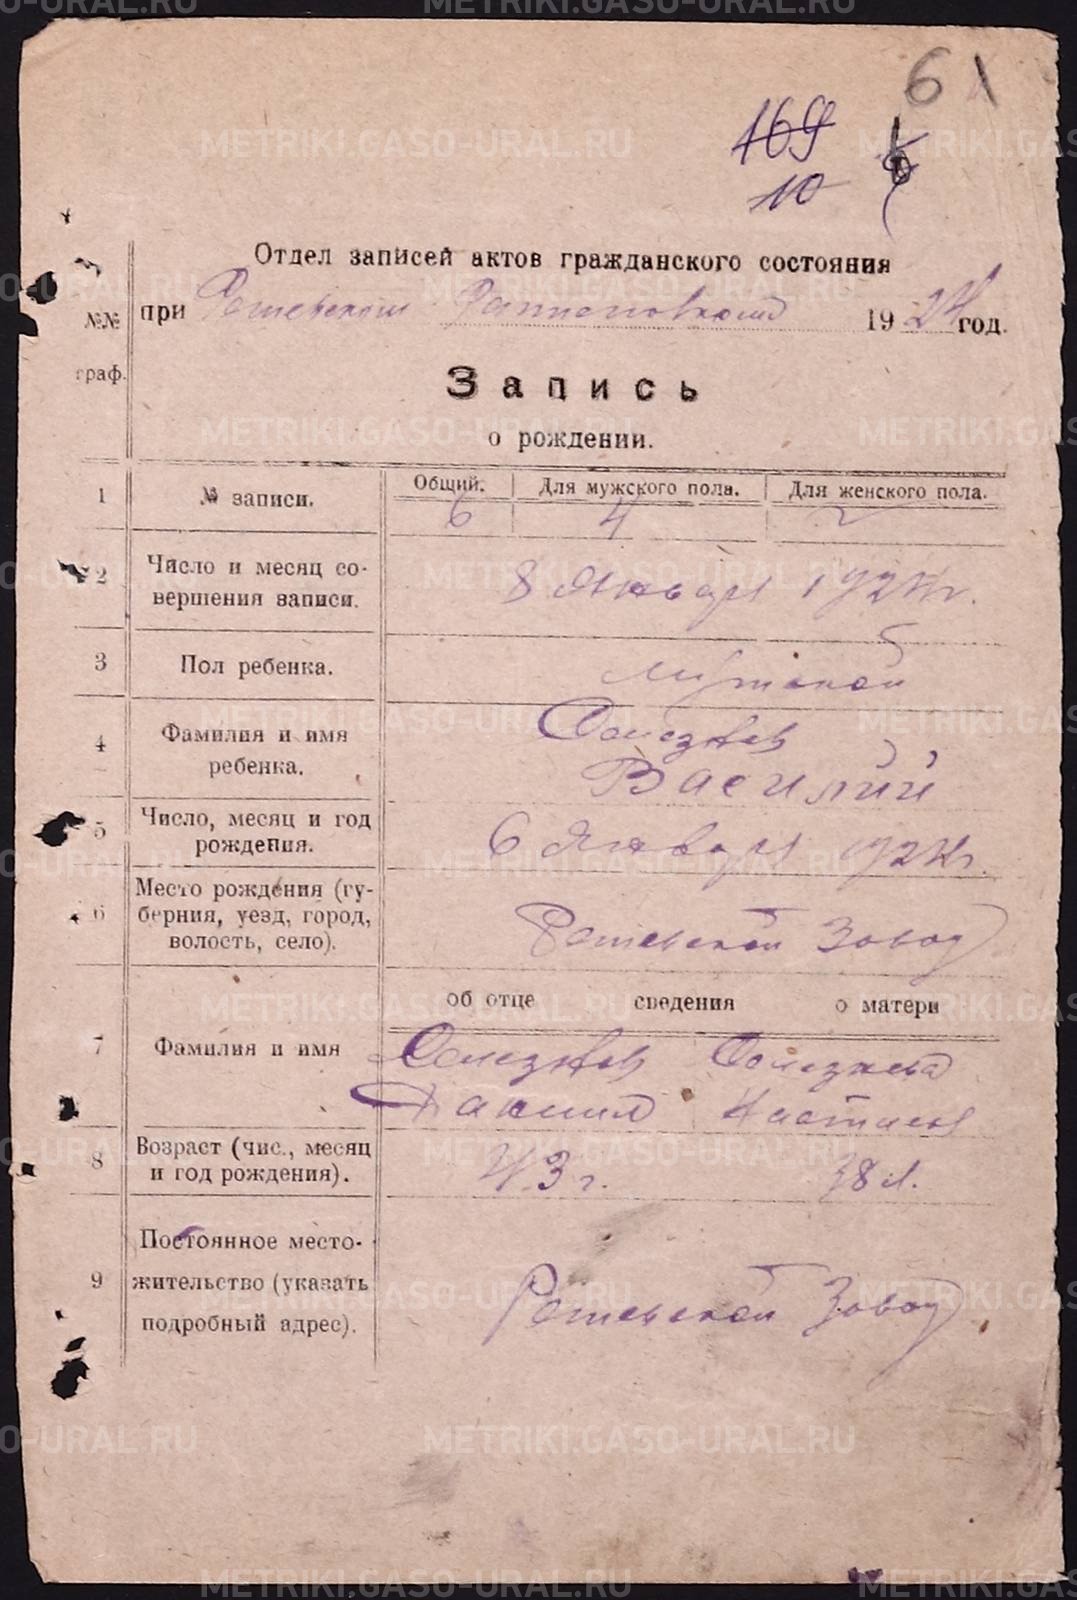 61
169
10
Отдел записей актов гражданского состояния
№№ граф.
при Режевском 1924 год.
Запись
о рождении.
1 № записи. Общий. Для мужского пола. Для женского пола.
6 4
2 Число и месяц совершения записи. 8 Января 1924 г.
3 Пол ребенка. Мужской
4 Фамилия и имя ребенка. Селезнев
Василий
5 Число, месяц и год рождения. 6 Января 1924 г.
6 Место рождения (губерния, уезд, город, волость, село). Режевской Завод
об отце сведения о матери
7 Фамилия и имя Селезнев Селезнева
Даниил
8 Возраст (чис., месяц и год рождения). 43 г. 38 л.
9 Постоянное местожительство (указать подробный адрес). Режевской Завод
METRIKI.GASO-URAL.RU